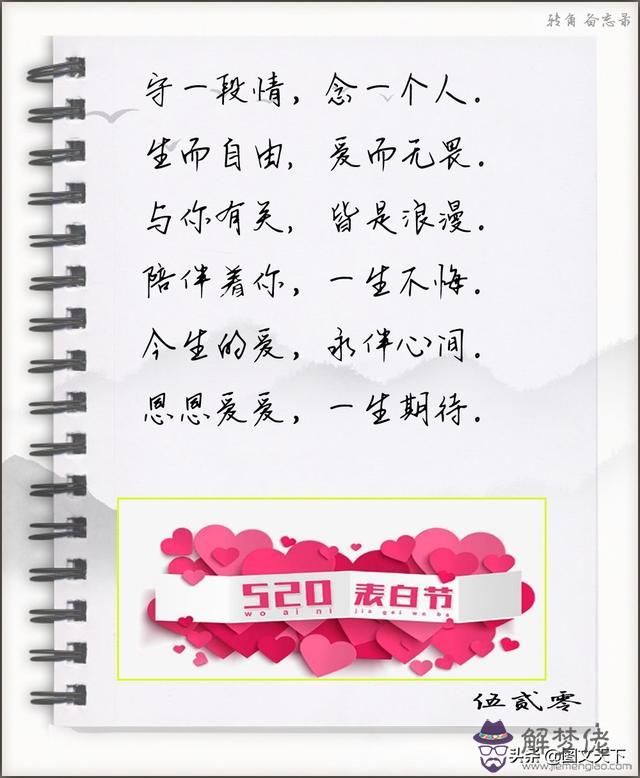 转角 备忘录
守一段情，念一个人。
生而自由，爱而无畏。
与你有关，皆是浪漫。
陪伴着你，一生不悔。
今生的爱，永伴心间。
恩恩爱爱，一生期待。
520 表白节
wo ai ni jia gei wo ba
伍贰零
解梦佬
头条 @图文天下
www.jiemenglao.com